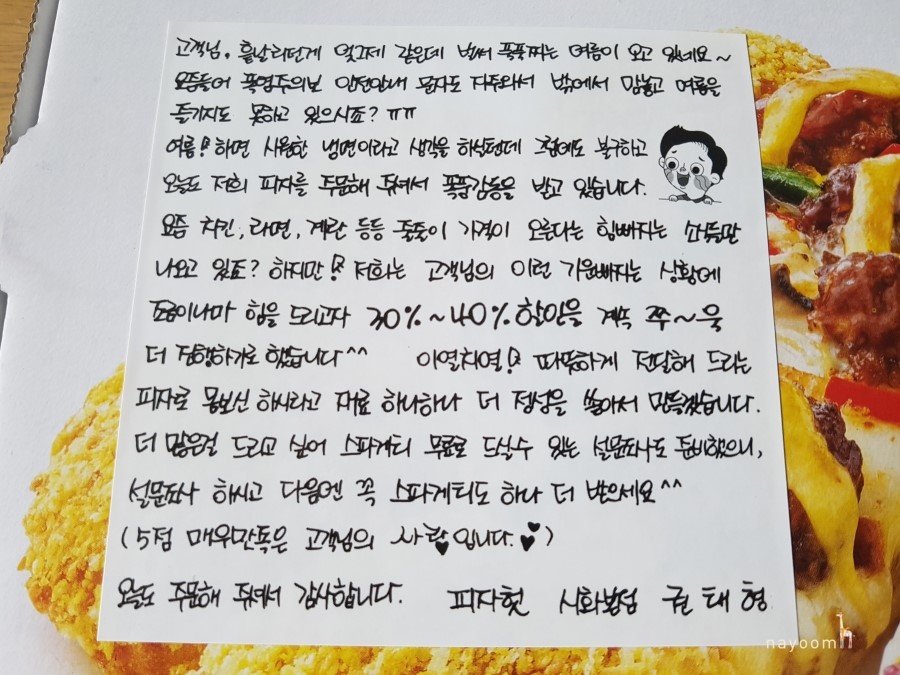 고객님. 흩날리던게 엊그제 같은데 벌써 푹푹찌는 여름이 오고 있네요~
요즘들어 폭염주의보 안전안내 문자도 자주와서 밖에서 맘놓고 여름을
즐기지도 못하고 있으시죠? ㅠㅠ
여름! 하면 시원한 냉면이라고 생각을 하실텐데 그럼에도 불구하고
오늘도 저희 피자를 주문해 주셔서 폭풍감동을 받고 있습니다.
요즘 치킨, 라면, 계란 등등 줄줄이 가격이 오른다는 힘빠지는 소식들만
나오고 있죠? 하지만! 저희는 고객님의 이런 기운빠지는 상황에
조금이나마 힘을 드리고자 30%~40%할인을 계속 쭈~욱
더 진행하기로 했습니다^^ 이열치열! 따뜻하게 전달해 드리는
피자로 몸보신 하시라고 재료 하나하나 더 정성을 쏟아서 만들겠습니다.
더 많은걸 드리고 싶어 스파게티 무료로 드실수 있는 설문조사도 준비했으니,
설문조사 하시고 다음엔 꼭 스파게티도 하나 더 받으세요^^
(5점 매우만족은 고객님의 사랑♥입니다.♥♥)
오늘도 주문해 주셔서 감사합니다. 피자헛 시화본점 권태형
nayoom